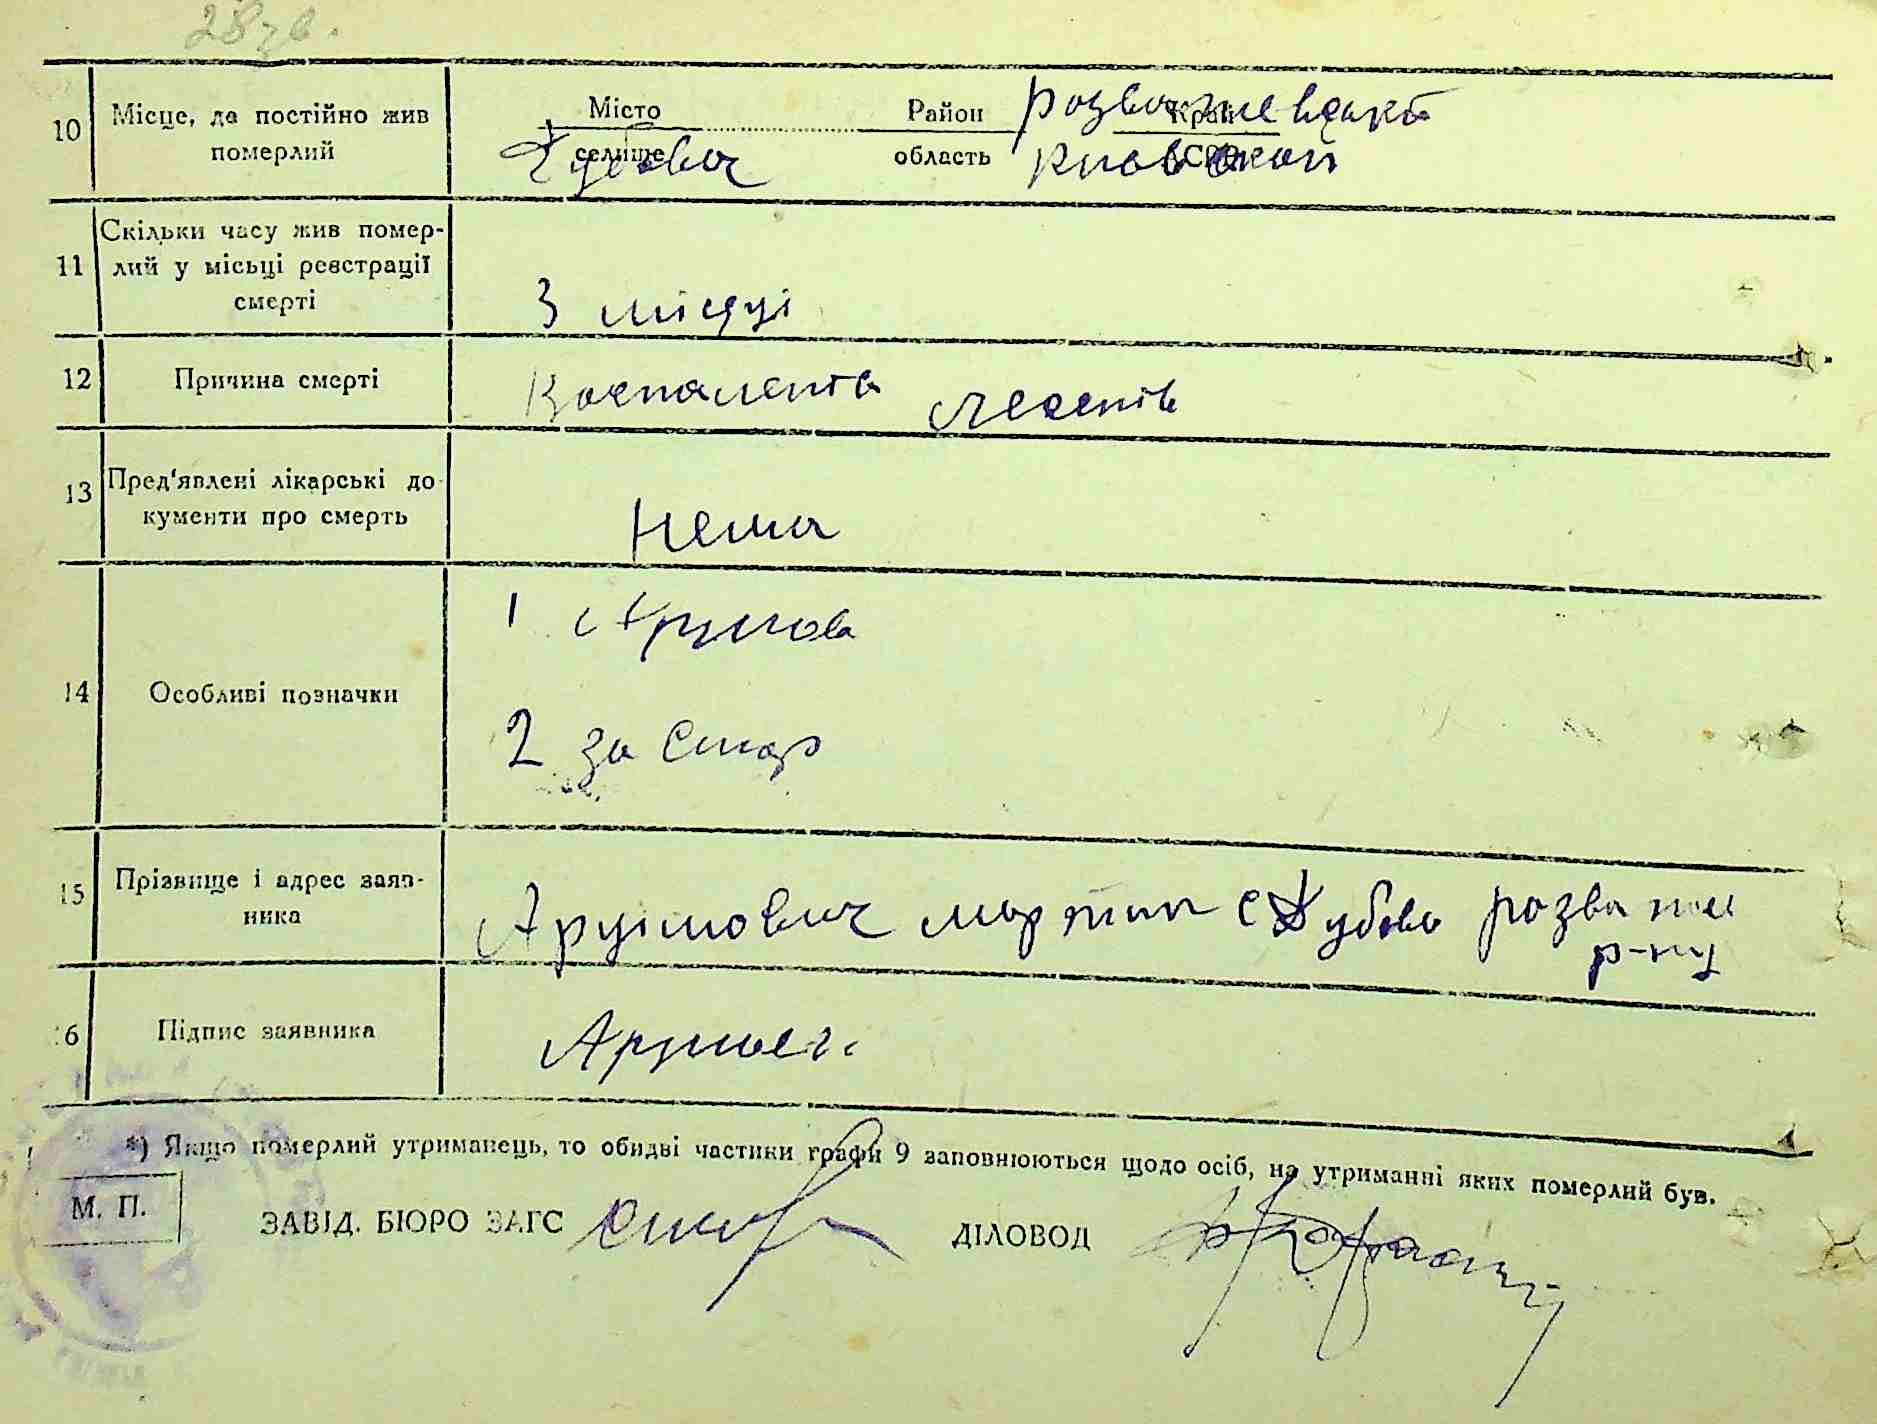 28 зв.
10 Місце, де постійно жив померлий Місто селище Район область Край АСРР
Розважевської
Дубова Київської
11 Скільки часу жив помер-
лий у місьці реєстрації
смерті
3 місяці
12 Причина смерті
Воспаленія легенів
13 Пред'явлені лікарські до
кументи про смерть
Нема
14 Особливі позначки
1
2 за
15 Прізвище і адрес заяв-
ника
мартин с Дубова розваж
р-ну
16 Підпис заявника
*) Якщо померлий утриманець, то обидві частини графи 9 заповнюються щодо осіб, на утриманні яких померлий був.
М. П.
ЗАВІД. БЮРО ЗАГС ДІЛОВОД